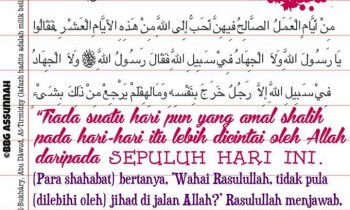 مِنْ أَيَّامٍ الْعَمَلُ الصَّالِحُ فِيهِنَّ أَحَبُّ إِلَى اللَّهِ مِنْ هَذِهِ الأَيَّامِ الْعَشْرِ فَقَالُوا
يَا رَسُولَ اللَّهِ وَلاَ الْجِهَادُ فِي سَبِيلِ اللَّهِ فَقَالَ رَسُولُ اللَّهِ ﷺ وَلاَ الْجِهَادُ
فِي سَبِيلِ اللَّهِ إِلاَّ رَجُلٌ خَرَجَ بِنَفْسِهِ وَمَالِهِ فَلَمْ يَرْجِعْ مِنْ ذَلِكَ بِشَىْءٍ
"Tiada suatu hari pun yang amal shalih
pada hari-hari itu lebih dicintai oleh Allah
daripada SEPULUH HARI INI.
(Para shahabat) bertanya, "Wahai Rasulullah, tidak pula
(dilebihi oleh) jihad di jalan Allah?" Rasulullah menjawab,
©BBG ASSUNNAH
-Bukhary, Abu Dawud, At-Tirmidzy (lafazh hadits adalah milik bel